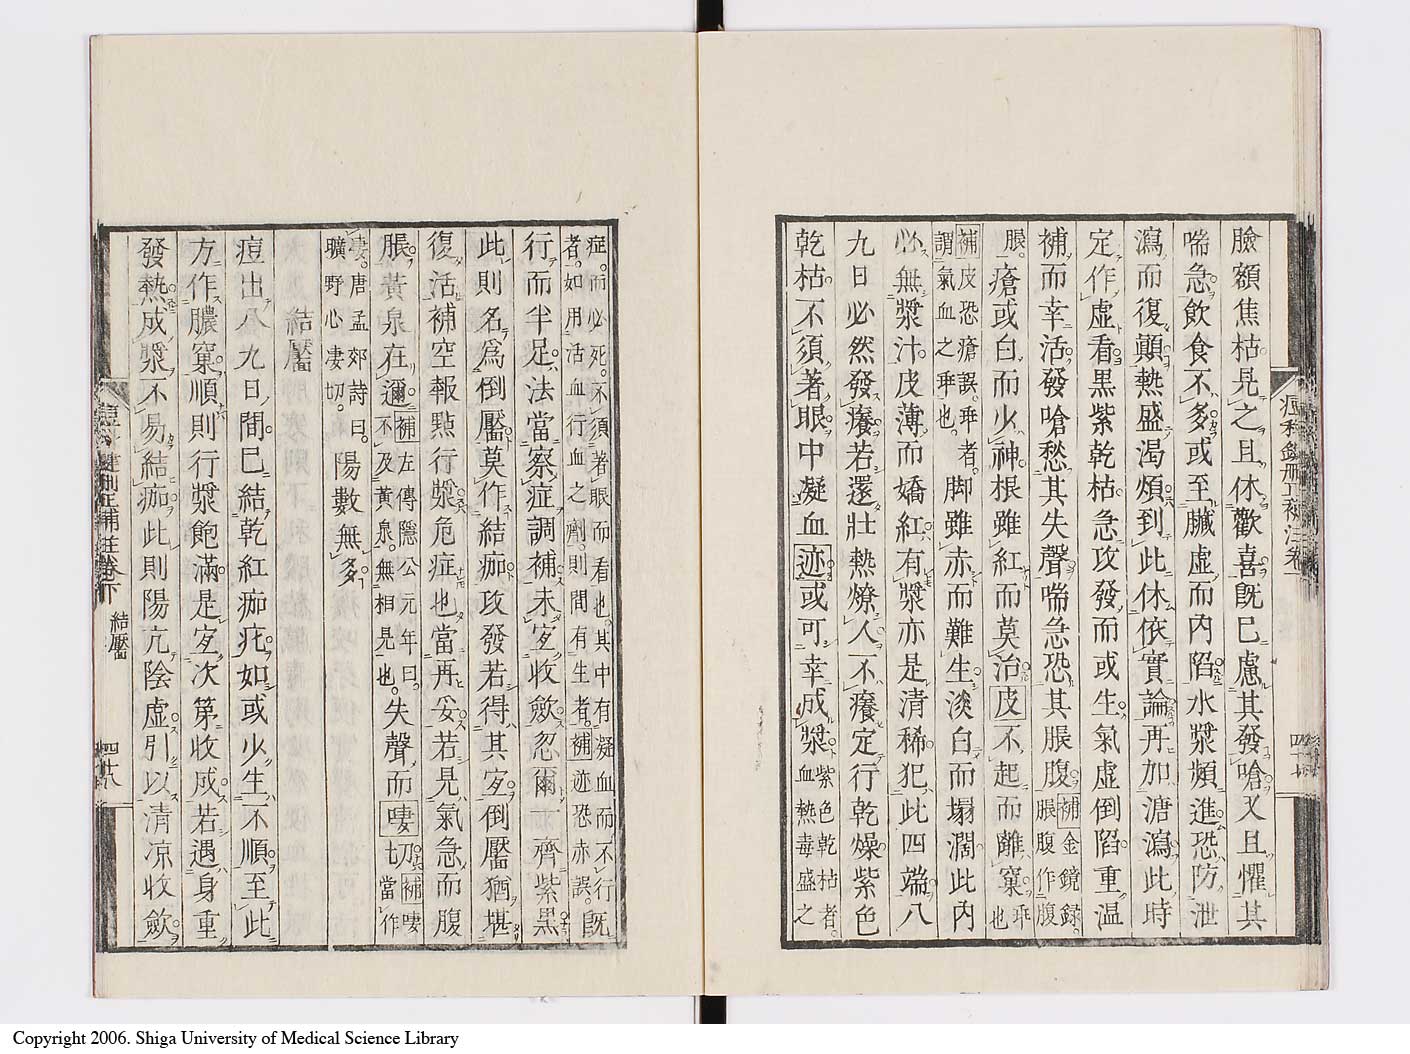 臉額焦枯見之且休歡喜旣巳慮其發嗆又且懼其
喘急飮食不多或至臟虛而內陷水漿頻進恐防泄
瀉而復顚熱盛渴煩到此休依實論再加溏瀉此時
定作虛看黑紫乾枯急攻發而或生氣虛倒陷重温
補而幸活發嗆愁其失聲喘急恐其脹腹補金鏡錄脹腹作腹
脹瘡或白而少神根雖紅而莫治皮不起而離窠乖也
補皮恐瘡誤乖者謂氣血之乖也脚雖赤而難生淡白而塌濶此內
必無漿汁皮薄而嬌紅有漿亦是清稀犯此四端八
九日必然發癢若還壯熱燎人不癢定行乾燥紫色
乾枯不須著眼中凝血迹或可幸成漿紫色乾枯者血熱毒盛之
痘科鍵刪正補注卷
症而必死不須著眼而看也其中有凝血而不行
者如用活血行血之劑則間有生者補迹恐赤誤旣
行而半足法當察症調補未宐收斂忽爾痂齊紫黑
此則名爲倒靨莫作結痂攻發若得其宐倒靨猶堪
復活補空報點行漿危症也當再妥若見氣急而腹
脹黃泉在邇補左傳隱公元年曰不及黃泉無相見也失聲而啛切補啛切當作
凄唐孟郊詩曰曠野心凄切陽數無多
結靨
痘出八九日間巳結乾紅痂疕如或少生不順至此
方作膿窠順則行漿飽滿是宐次第收成若遇身重
發熱成漿不易結痂此則陽亢陰虛引以清凉收斂
結靨
四十八
Copyright 2006. Shiga University of Medical Science Library